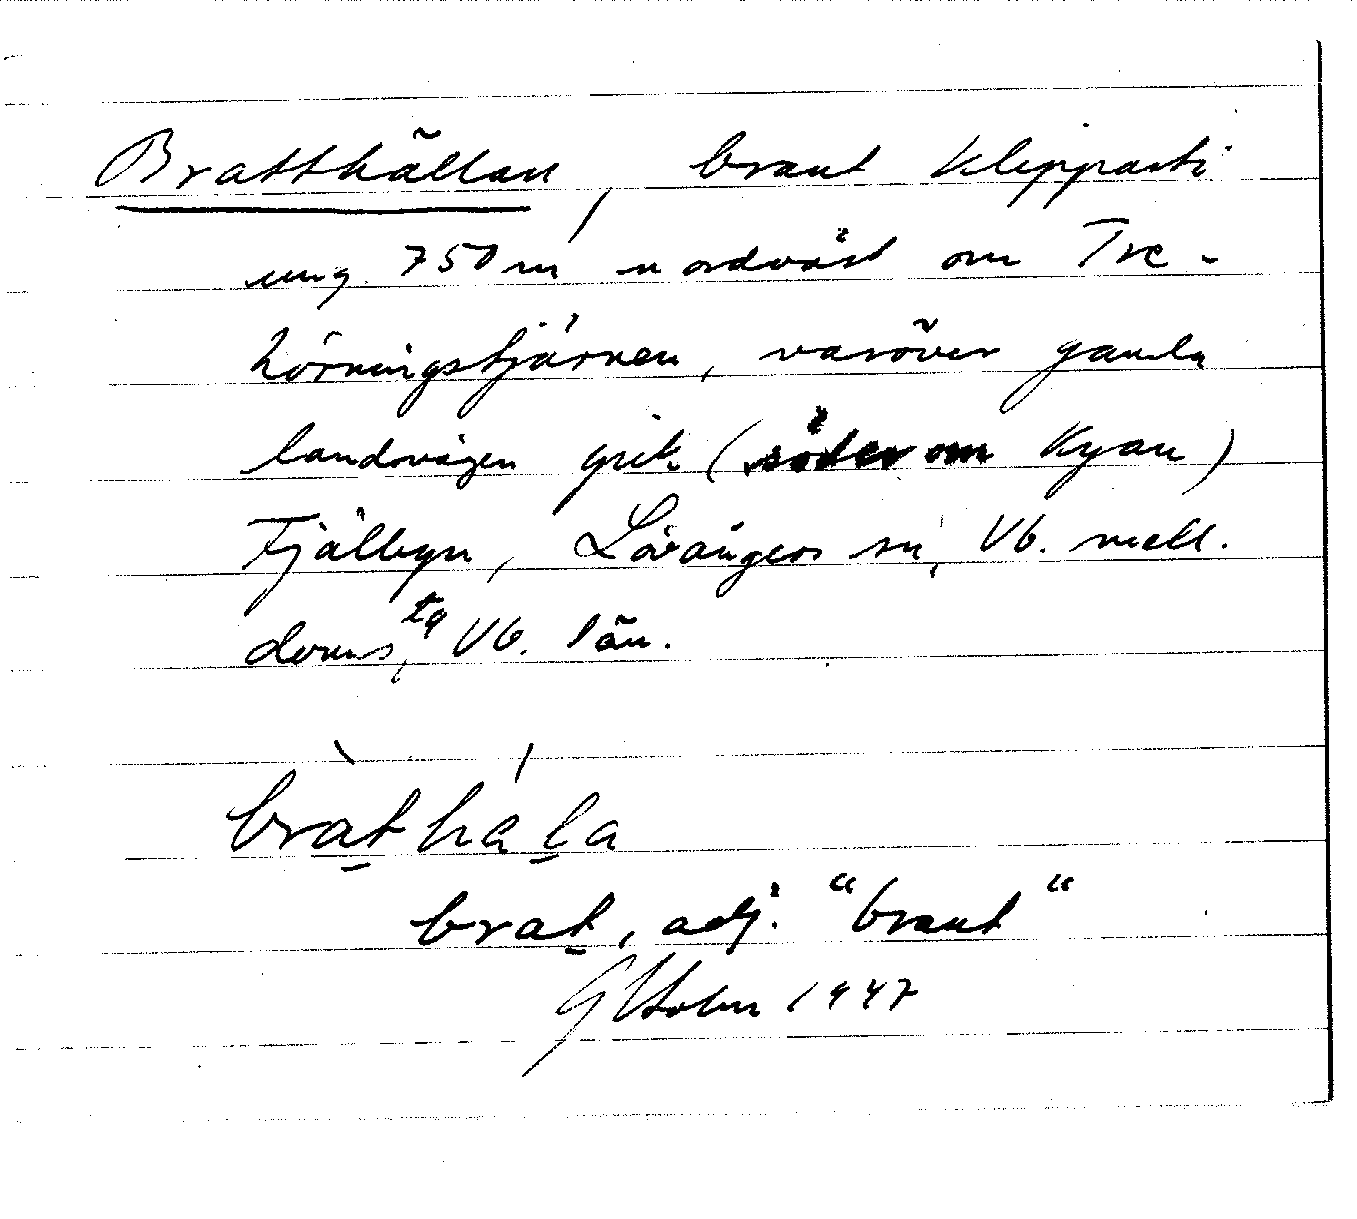 Bratthällan, brant klipparti
ung. 750 m nordväst om Tre-
hörningstjärnen, varöver gamla
landsvägen gick (söder om Kyan)
Fjälbyn, Lövångers sn, Vb. mell.
doms, tg Vb. län.
bràt há la
brat, adj. "brant"
G Holm 1947